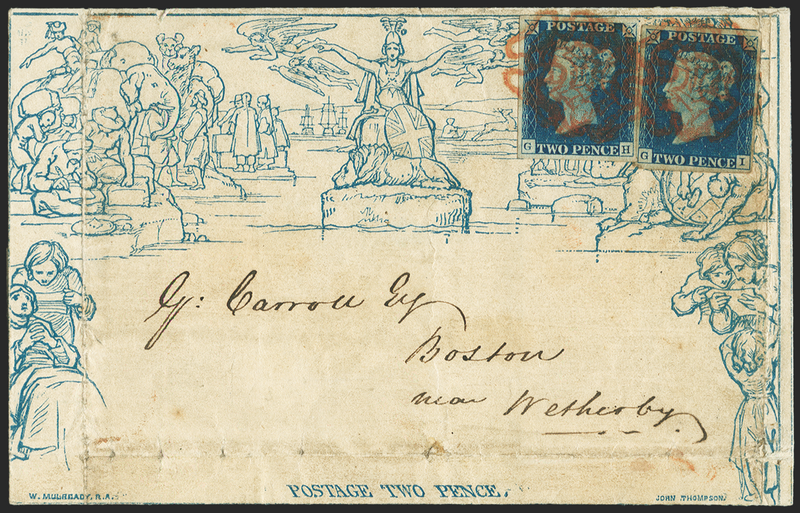 POSTAGE
G TWO PENCE H
POSTAGE
G TWO PENCE I
G: Carroll Esq
Boston
near Wetherby
POSTAGE TWO PENCE.
W. MULREADY. R.A.
JOHN THOMPSON.